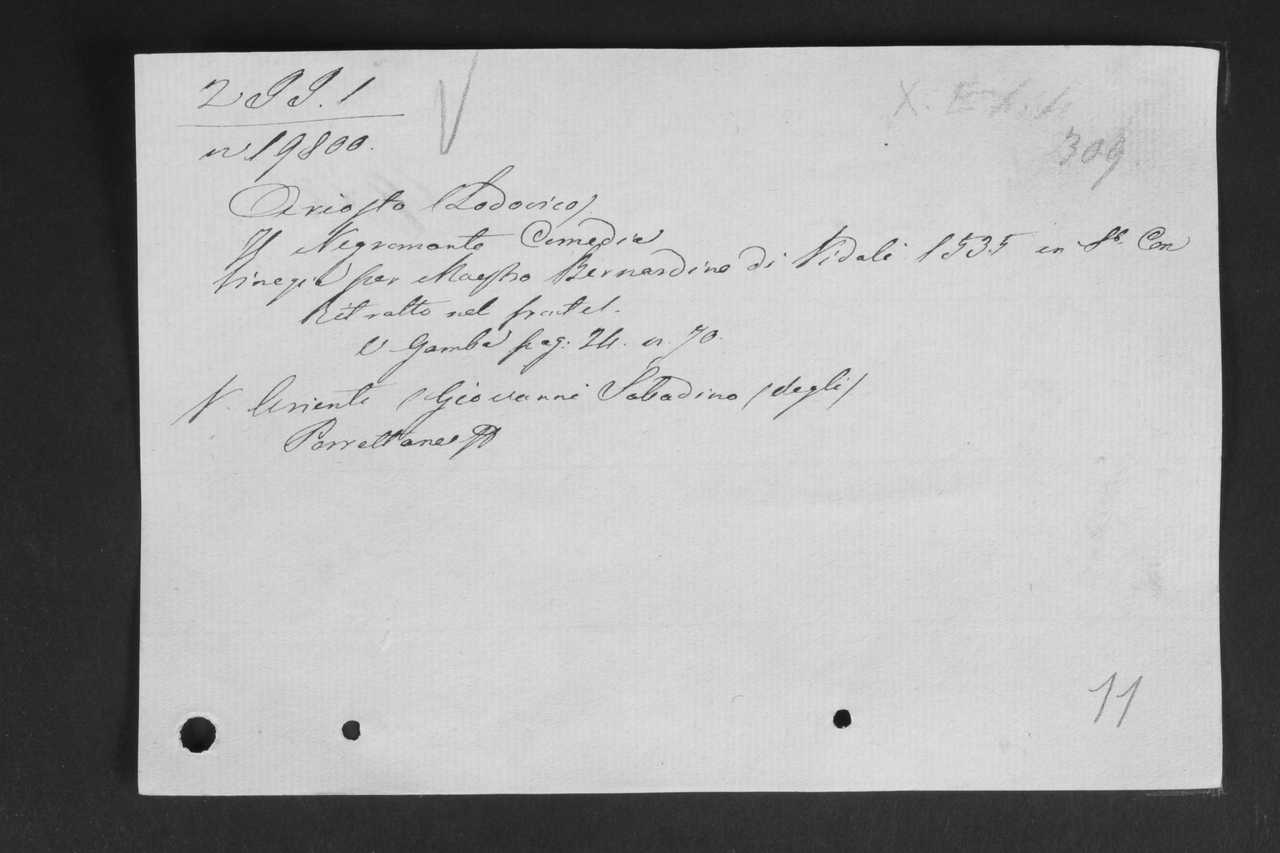 2 PP. 1
n 19800.
309
Ariosto (Lodovico)
Il Negromante Comedia
Vinegia per Maestro Bernardino di Vidali 1535 in 8º. Con
Ritratto nel frontes.
V Gamba pag: 24. n. 70.
V. Arienti (Giovanni Sabadino (degli)
Porrettane
11